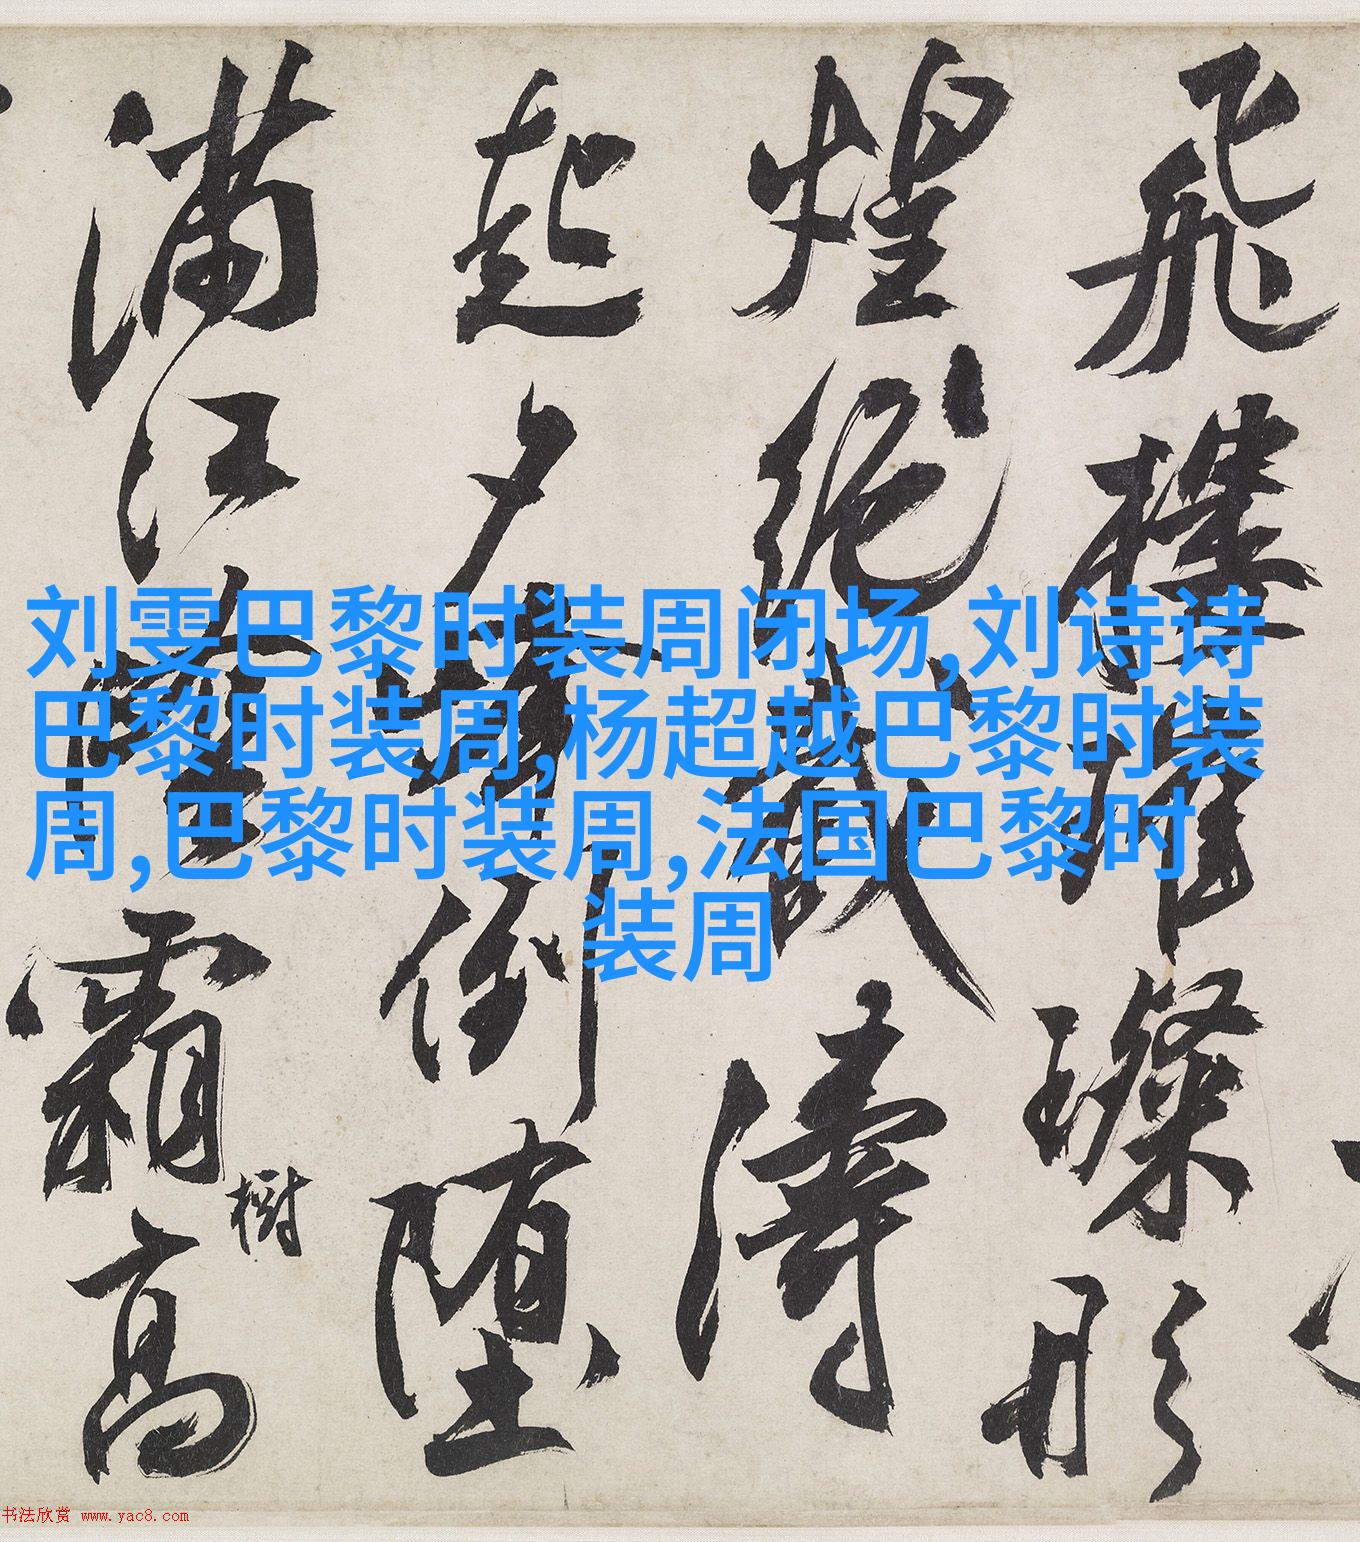 刘雯巴黎时装周闭场,刘诗诗
巴黎时装周,杨超越巴黎时装
周,巴黎时装周,法国巴黎时
装周
飛樓璨彤
煌絕濤
起夕倒堕
滿江霜高
樹
书法欣赏 www.yac8.com